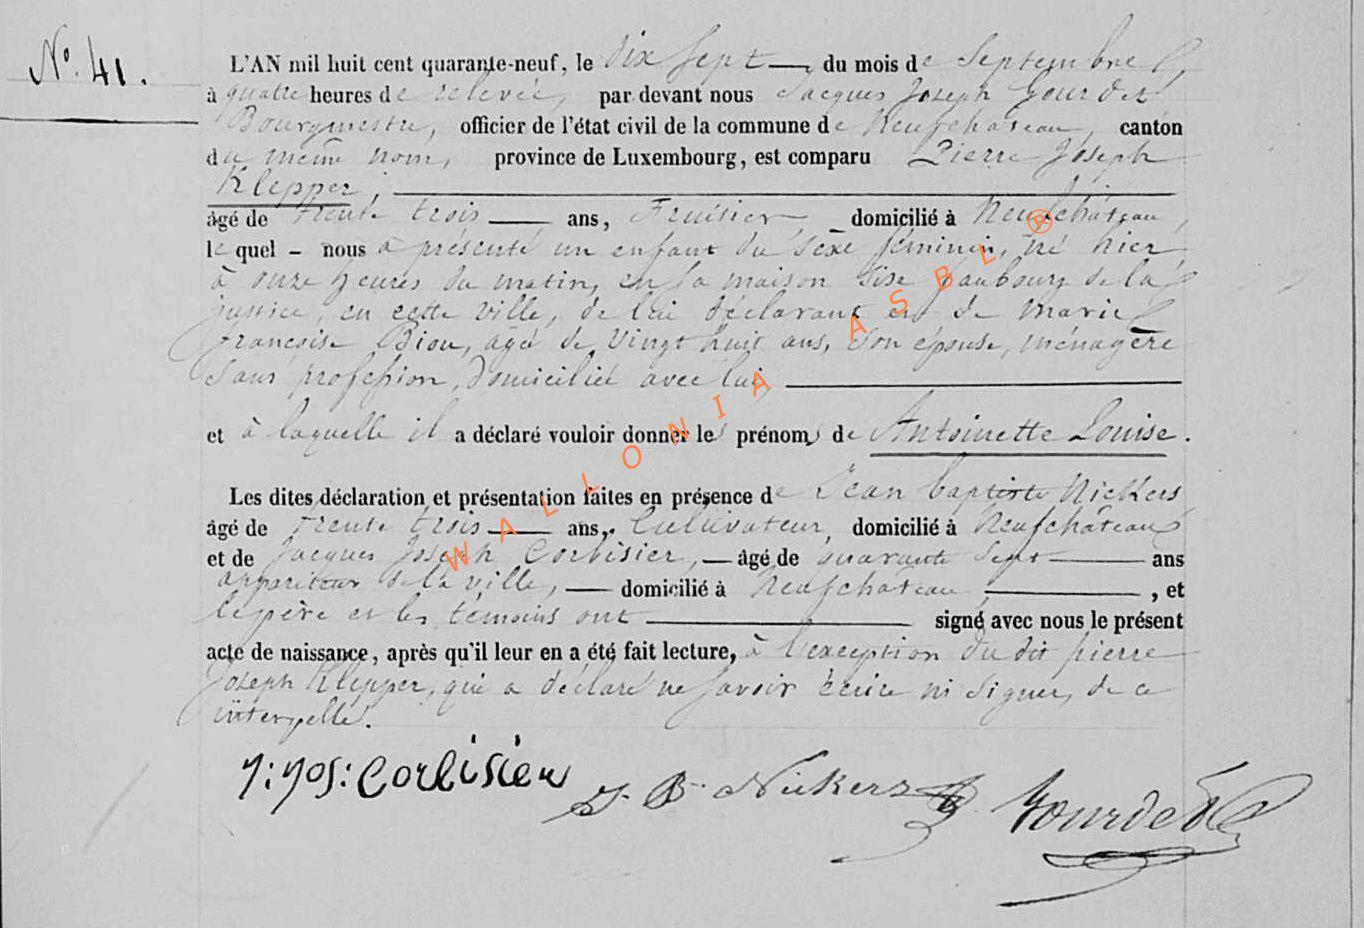 N° 41.
L'AN mil huit cent quarante-neuf, le dix sept du mois de Septembre,
à quatre heures de relevée, par devant nous Jacques Joseph Gourdet
Bourgmestre, officier de l'état civil de la commune de Neufchateau, canton
du même nom, province de Luxembourg, est comparu Pierre Joseph
Klepper,
âgé de trente trois ans, domicilié à Neufchâteau,
le quel - nous a présenté un enfant du sexe féminin, né hier
à onze heures du matin, en sa maison sise faubourg de la
justice, en cette ville, de lui déclarant et de Marie
françoise Biou, âgée de Vingt huit ans, son épouse, ménagère
Sans profession, domiciliée avec lui,
et à laquelle il a déclaré vouloir donner les prénoms de Antoinette Louise.
Les dites déclaration et présentation faites en présence de Jean baptiste Nickers
âgé de trente trois ans, Cultivateur, domicilié à Neufchâteau
et de Jacques Joseph Corbisier, âgé de quarante sept ans
appariteur de la ville, domicilié à Neufchateau, , et
le père et les témoins ont signé avec nous le présent
acte de naissance, après qu'il leur en a été fait lecture, à l'exception du dit pierre
Joseph Klepper, qui a déclaré ne savoir écrire ni signer, de ce
interpellé.
J: Jos: Corbisier J. B. Nickers J. Gourdet
WALLONIA ASBL ®